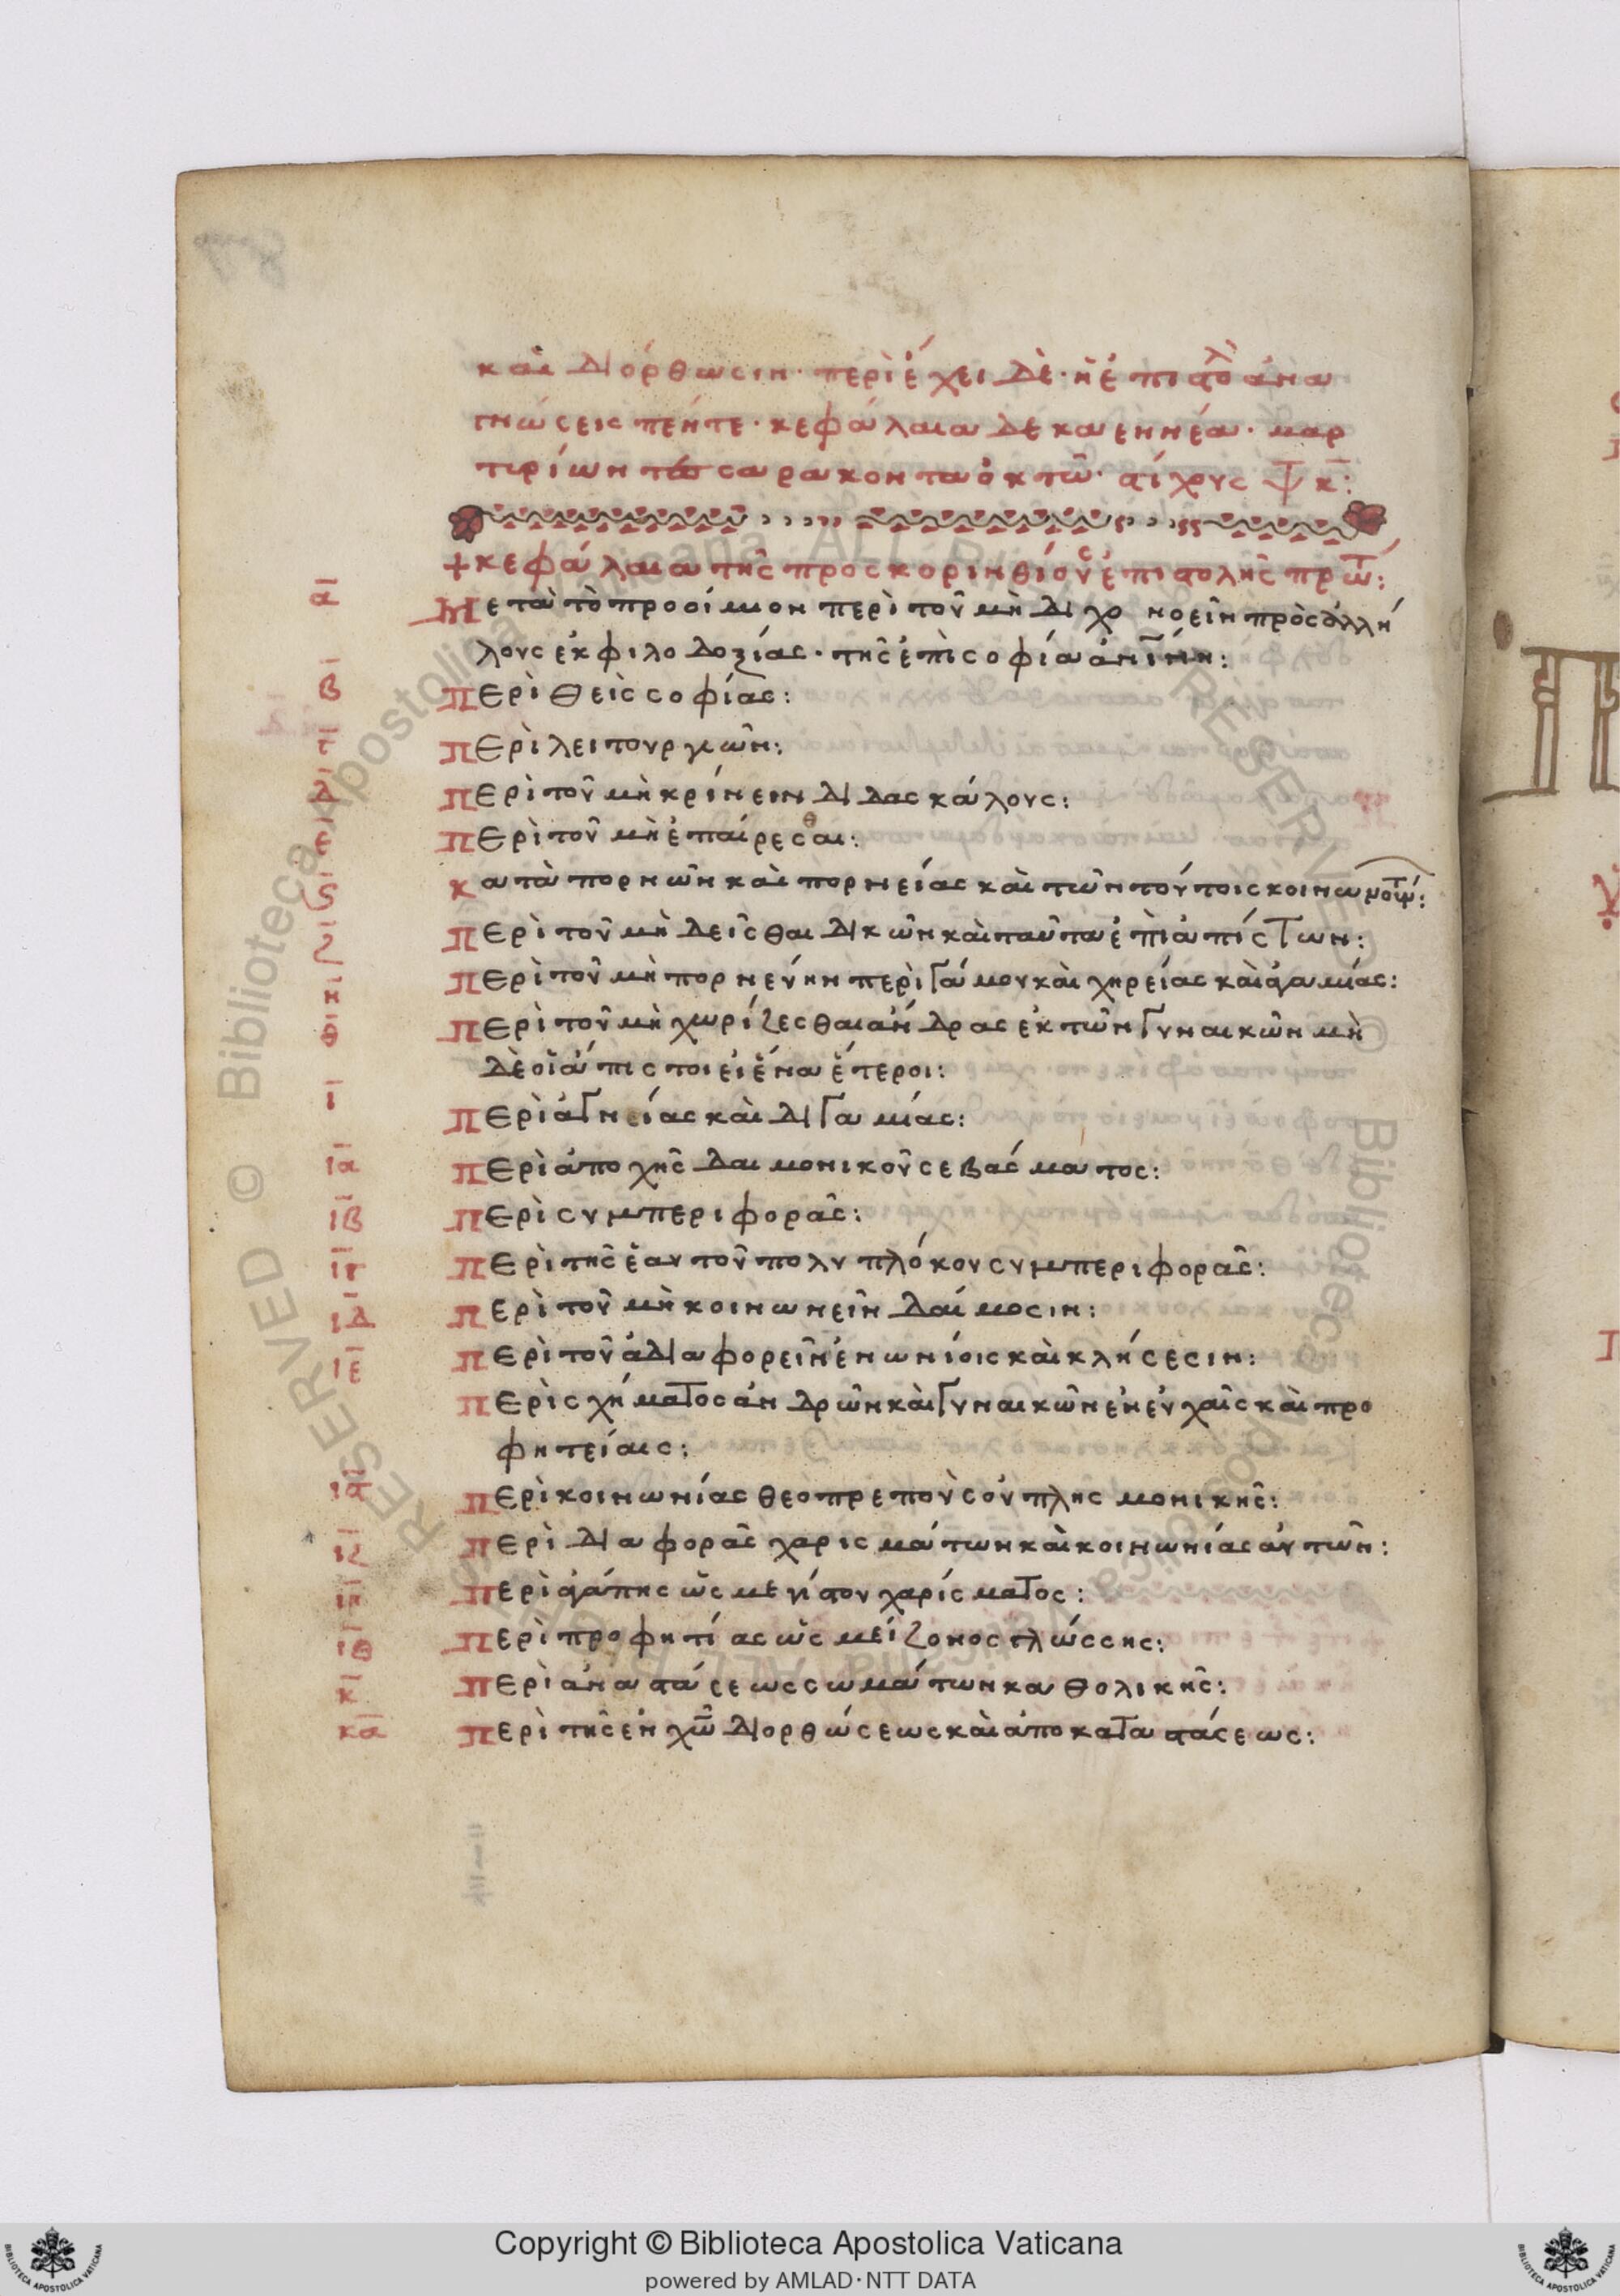 καὶ διόρθωσιν· περιέχει δὲ· ἡ ἐπιστολὴ ἀνα
γνώσεις πέντε· κεφάλαια δέκα ἐννέα· μαρ
τιρίων τεσσαρακοντα ὀκτῶ· στίχους ψκ:
+ κεφάλαια τῆς προς κορινθίους ἐπιστολῆς πρώτ:
α Μετὰ τὸ προοίμιον περὶ τοῦ μὴ διχονοεῖν πρὸς ἀλλή
λους ἐκ φιλοδοξίας· τῆς ἐπὶ σοφία
β Περὶ θείς σοφίας:
γ Περὶ λειτουργιῶν:
δ Περὶ τοῦ μὴ κρίνειν διδασκάλους:
ε Περὶ τοῦ μὴ ἐπαίρεσθαι:
ς κατὰ πορνῶν καὶ πορνείας καὶ τῶν τούτοις
ζ Περὶ τοῦ μὴ δεῖσθαι δικῶν καὶ ταῦτα ἐπὶ ἀπίστων:
η Περὶ τοῦ μὴ πορνεύην περὶ γάμου καὶ χηρείας καὶ ἀγαμίας:
θ Περὶ τοῦ μὴ χωρίζεσθαι ἄνδρας ἐκ τῶν γυναικῶν μὴ
δὲ οἳ ἄπιστοι εἰ ἕνα ἕτεροι:
ι Περὶ ἁγνείας καὶ διγαμίας:
ια Περὶ ἀποχῆς δαιμονικοῦ σεβάσματος:
ιβ Περὶ συμπεριφορᾶς:
ιγ Περὶ τῆς ἑαυτοῦ πολυπλόκου συμπεριφορᾶς:
ιδ Περὶ τοῦ μὴ κοινωνεῖν δαίμοσιν:
ιε Περὶ τοῦ ἀδιαφορεῖν ἐν ωνίοις καὶ κλήσεσιν:
Περὶ σχήματος ἀνδρῶν καὶ γυναικῶν ἐν εὐχαῖς καὶ προ
φητείαις:
Περὶ κοινωνίας θεοπρεποὺς οὐ πλησμονικῆς:
ιζ Περὶ διαφορᾶς χαρισμάτων καὶ κοινωνίας αὐτῶν:
ιη Περὶ ἀγάπης ὡς μεγίστου χαρίσματος:
ιθ Περὶ προφητίας ὡς μείζονος γλώσσης:
κ Περὶ ἀναστάσεως σωμάτων καθολικῆς:
κα Περὶ τῆς ἐν χῶ διορθώσεως καὶ ἀποκαταστάσεως:
Copyright © Biblioteca Apostolica Vaticana
powered by AMLAD·NTT DATA